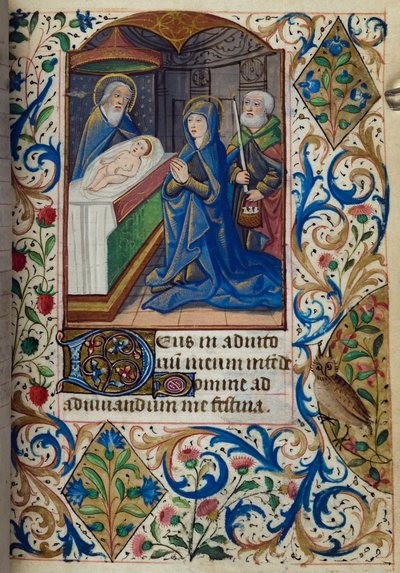 Deus in adiuto
riū meum intēde
Domine ad
adiuuandum me festina.